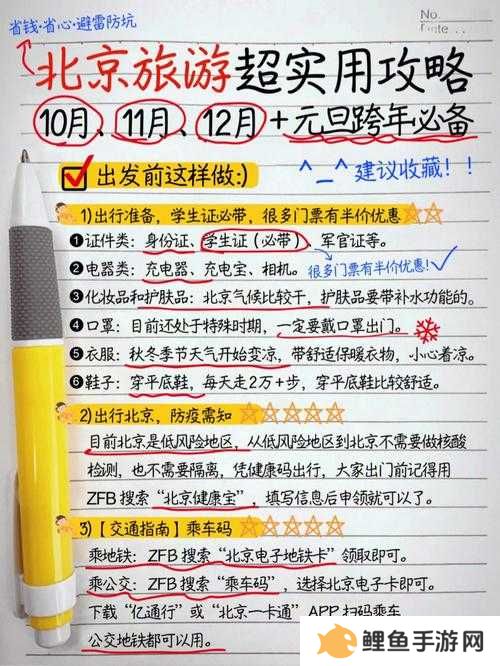 省钱·省心·避雷防坑
No.
北京旅游超实用攻略
10月、11月、12月+元旦跨年必备
出发前这样做:)
^_^建议收藏！！
1)出行准备，学生证必带，很多门票有半价优惠
❶证件类：身份证、学生证（必带）、军官证等。
❷电器类：充电器、充电宝、相机。
很多门票有半价优惠!
❸化妆品和护肤品：北京气候比较干，护肤品要带补水功能的。
❹口罩：目前还处于特殊时期，一定要戴口罩出门。
❺衣服：秋冬季节天气开始变凉，带舒适保暖衣物，小心着凉。
❻鞋子：穿平底鞋，每天走2万+步，穿平底鞋比较舒适。
2)出行北京，防疫需知
目前北京是低风险地区，从低风险地区到北京不需要做核酸
检测，也不需要隔离，凭健康码出行，大家出门前记得用
ZFB搜索“北京健康宝”，填写信息后申领就可以了。
3)【交通指南】乘车码
乘地铁：ZFB搜索“北京电子地铁卡”领取即可。
乘公交：ZFB搜索“乘车码”，选择北京电子卡即可。
下载“亿通行”或“北京一卡通”APP扫码乘车
公交地铁都可以用。
鲤鱼手游网